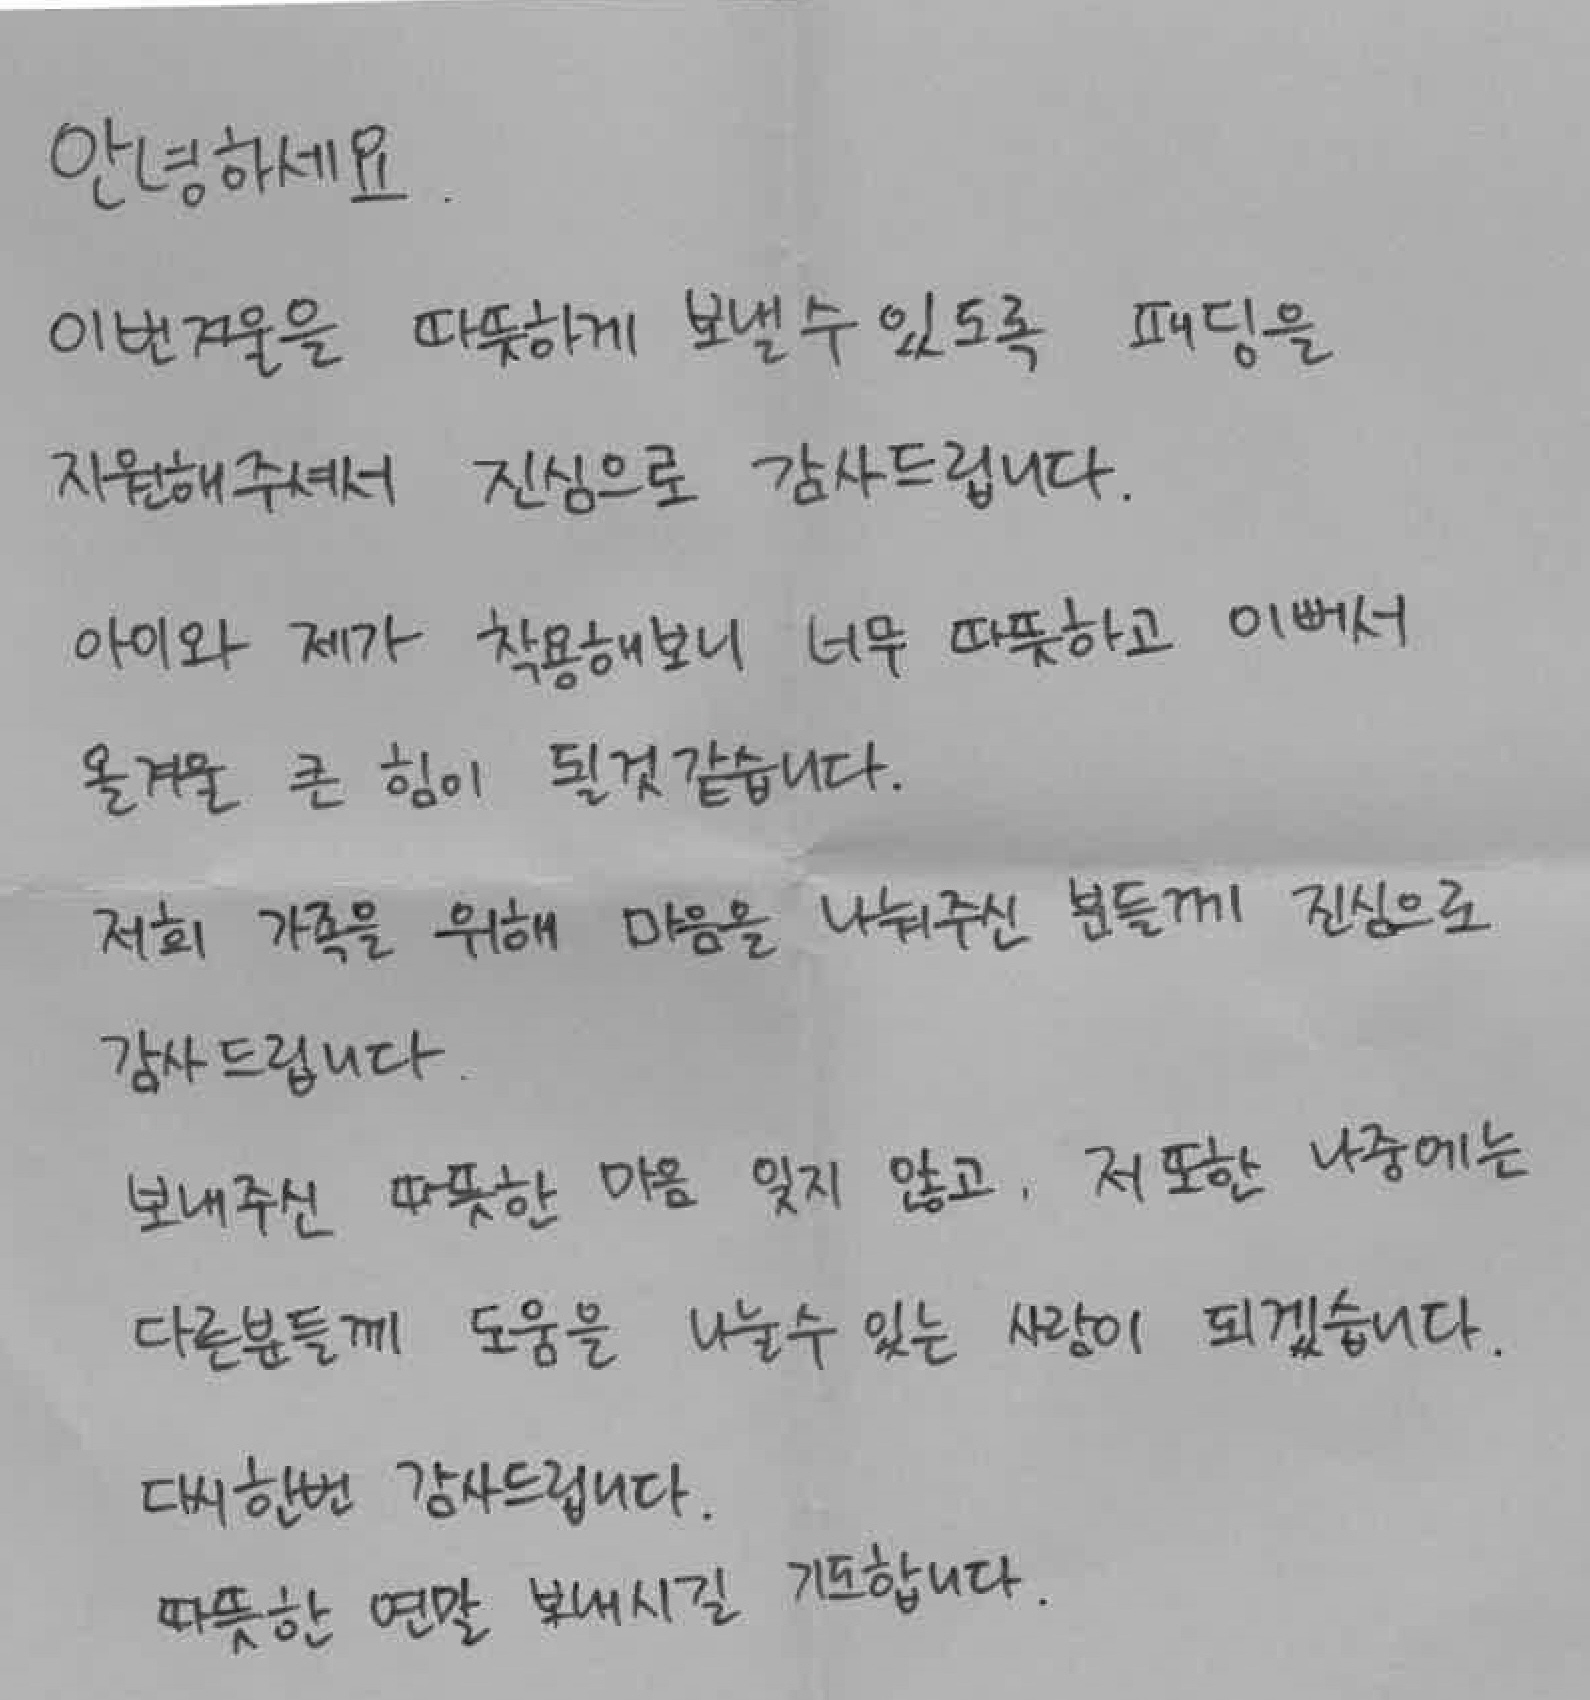 안녕하세요.
이번겨울을 따뜻하게 보낼수있도록 패딩을
지원해주셔서 진심으로 감사드립니다.
아이와 제가 착용해보니 너무 따뜻하고 이뻐서
올겨울 큰 힘이 될것같습니다.
저희 가족을 위해 마음을 나눠주신 분들께 진심으로
감사드립니다.
보내주신 따뜻한 마음 잊지 않고, 저 또한 나중에는
다른분들께 도움을 나눌수있는 사람이 되겠습니다.
다씨한번 감사드립니다.
따뜻한 연말 보내시길 기도합니다.